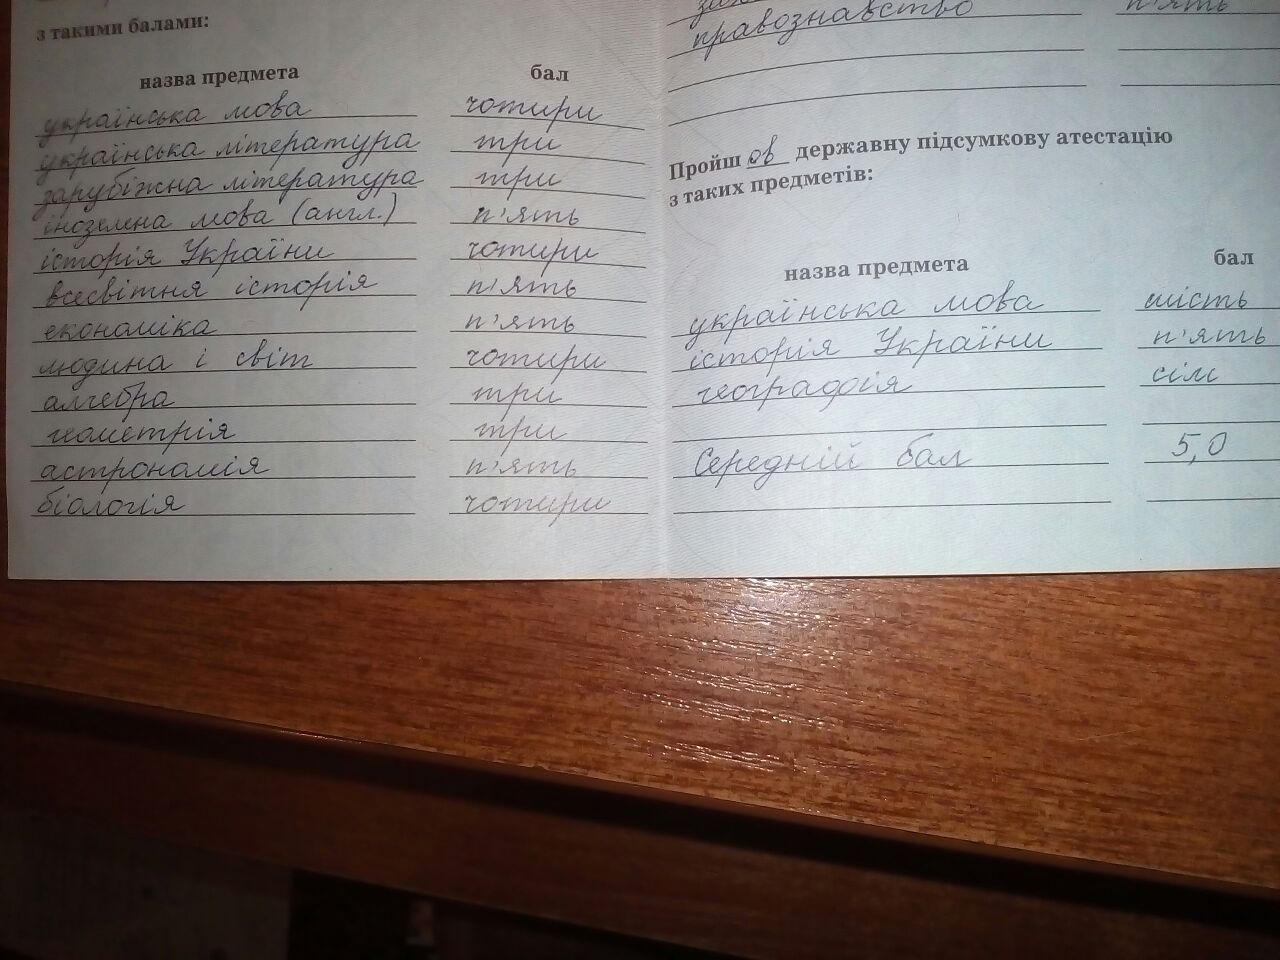 з такими балами:
назва предмета бал
українська мова чотири
українська література три
зарубіжна література три
іноземна мова (англ.) п'ять
історія України чотири
всесвітня історія п'ять
економіка п'ять
людина і світ чотири
алгебра три
геометрія три
астрономія п'ять
біологія чотири
правознавство п'ять
Пройшов державну підсумкову атестацію
з таких предметів:
назва предмета бал
українська мова шість
історія України п'ять
географія сім
Середній бал 5,0